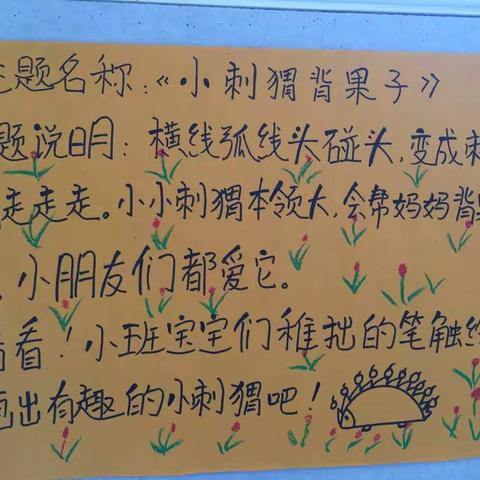 主题名称：《小刺猬背果子》
题说明：横线弧线头碰头，变成刺
走走走。小小刺猬本领大，会帮妈妈背
小朋友们都爱它。
看！小班宝宝们稚拙的笔触
出有趣的小刺猬吧！